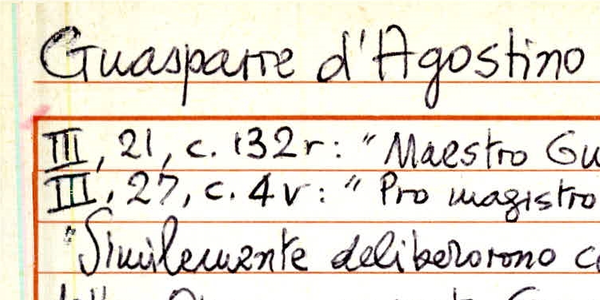 Guasparre d'Agostino
III, 21, c. 132r: "Maestro Gu
III, 27, c. 4v: " Pro magistro
"Similemente deliberorono c